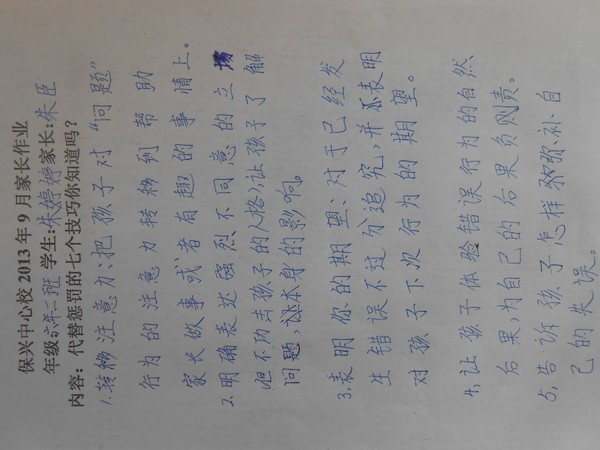 保兴中心校2013年9月家长作业
年级:六年二班 学生:朱婷婷 家长:朱臣
内容：代替惩罚的七个技巧你知道吗?
1.转移注意力:把孩子对“问题”
行为的注意力转移到帮助
家长做事或者有趣的事情上。
2.明确表达强烈不同意的立场
但不功击孩子的人格),让孩子了解
问题,本身的影响。
3.表明你的期望:对于已经发
生错误不过分追究,并表明
对孩子下次行为的期望。
4,让孩子体验错误行为的自然
后果,为自己的后果负责。
5,告诉孩子怎样弥补自
己的失误。